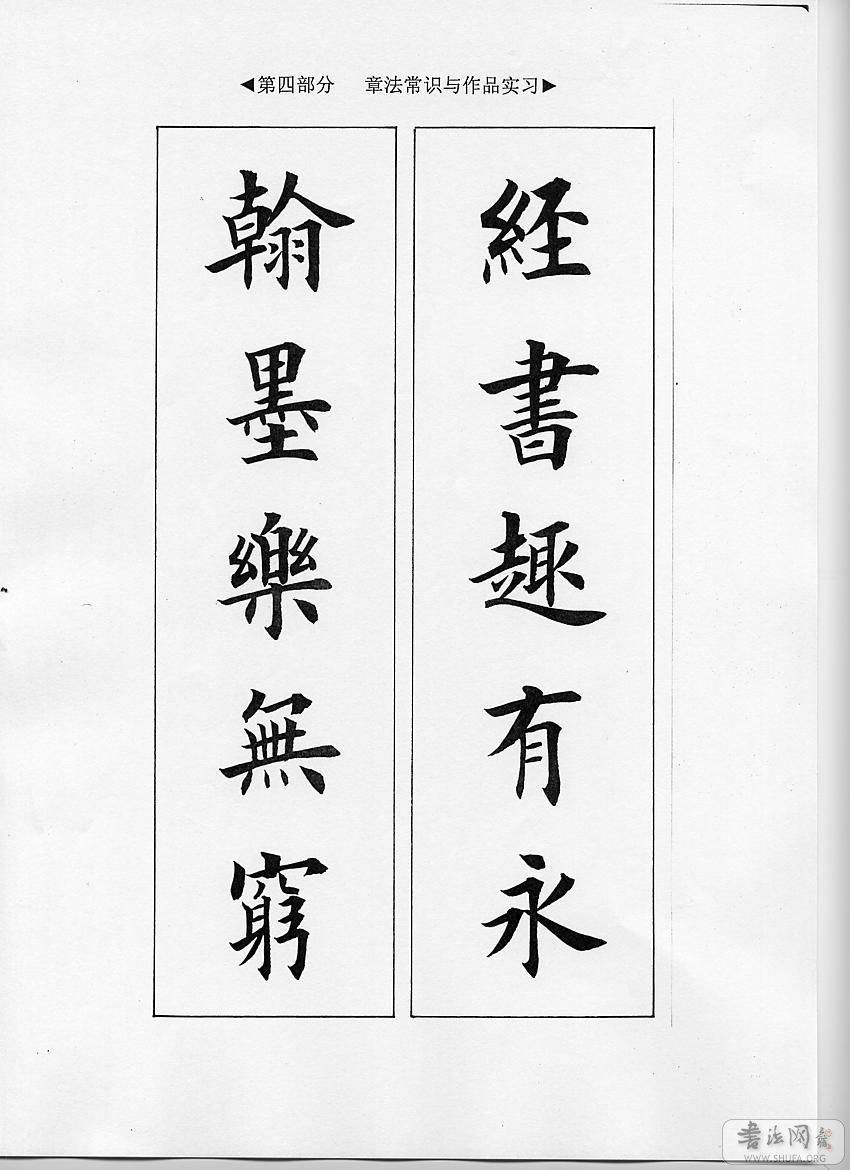 ◀第四部分 章法常识与作品实习▶
經書趣有永
翰墨樂無窮
书法网
WWW.SHUFA.ORG